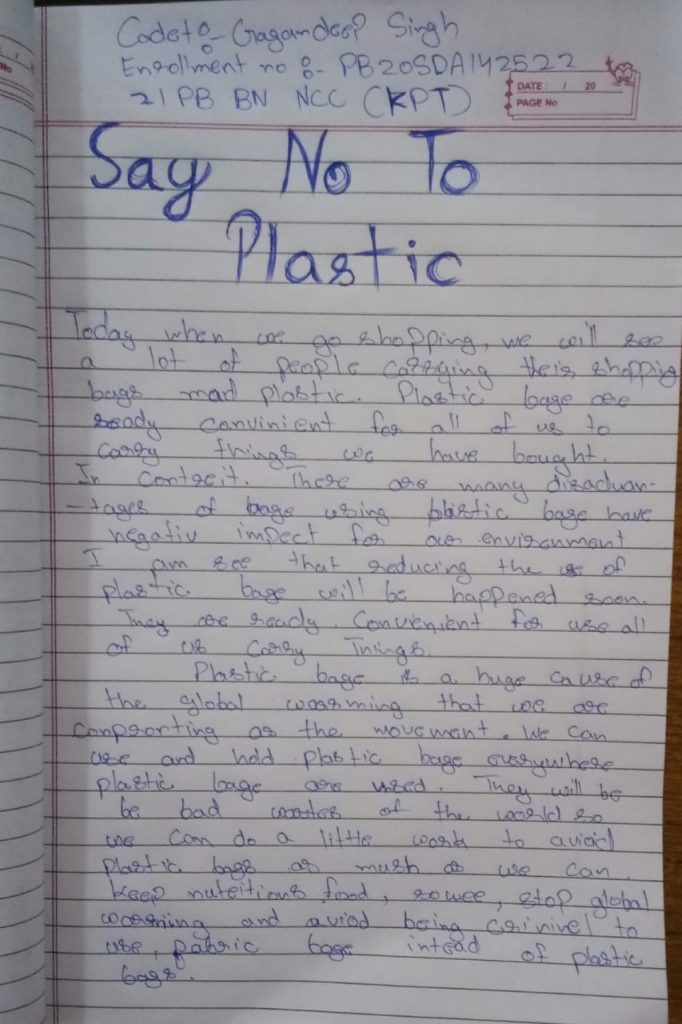 Cadet:- Gagandeep Singh
Enrollment no :- PB20SDA142522
21 PB BN NCC (KPT)
DATE: / 20
PAGE No
Say No To
Plastic
Today when we go shopping, we will see
a lot of people carrying their shopping
bags mad plastic. Plastic bage are
ready convinient for all of us to
carry things we have bought.
In contreit. There are many disadvan-
-tages of bags using plastic bage have
negativ impect for our environment
I am see that reducing the use of
plastic bage will be happened soon.
They are ready. Convenient for use all
of us carry Things.
Plastic bage is a huge cause of
the global woarming that we are
conprorting as the movement. We can
use and hold plastic bage everywhere
plastic bage are used. They will be
be bad wastes of the world so
we can do a little work to avioid
plastic bags as mush as we can.
Keep nuteitions food, sowee, stop global
woarming and aviod being crinivel to
use, pabric bage intead of plastic
bags.